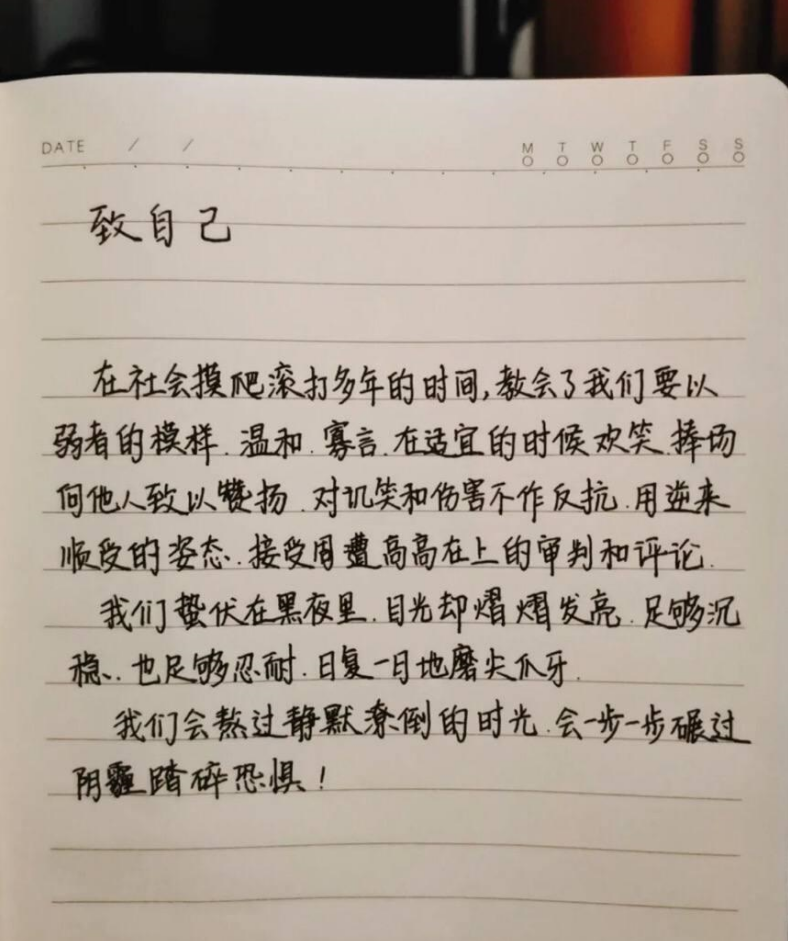 DATE / /
M T W T F S S
致自己
在社会摸爬滚打多年的时间,教会了我们要以
弱者的模样.温和.寡言.在适宜的时候欢笑.捧场
向他人致以赞扬.对讥笑和伤害不作反抗.用逆来
顺受的姿态.接受周遭高高在上的审判和评论.
我们蛰伏在黑夜里.目光却熠熠发亮.足够沉
稳.也足够忍耐.日复一日地磨尖爪牙.
我们会熬过静默潦倒的时光.会一步一步碾过
阴霾踏碎恐惧!